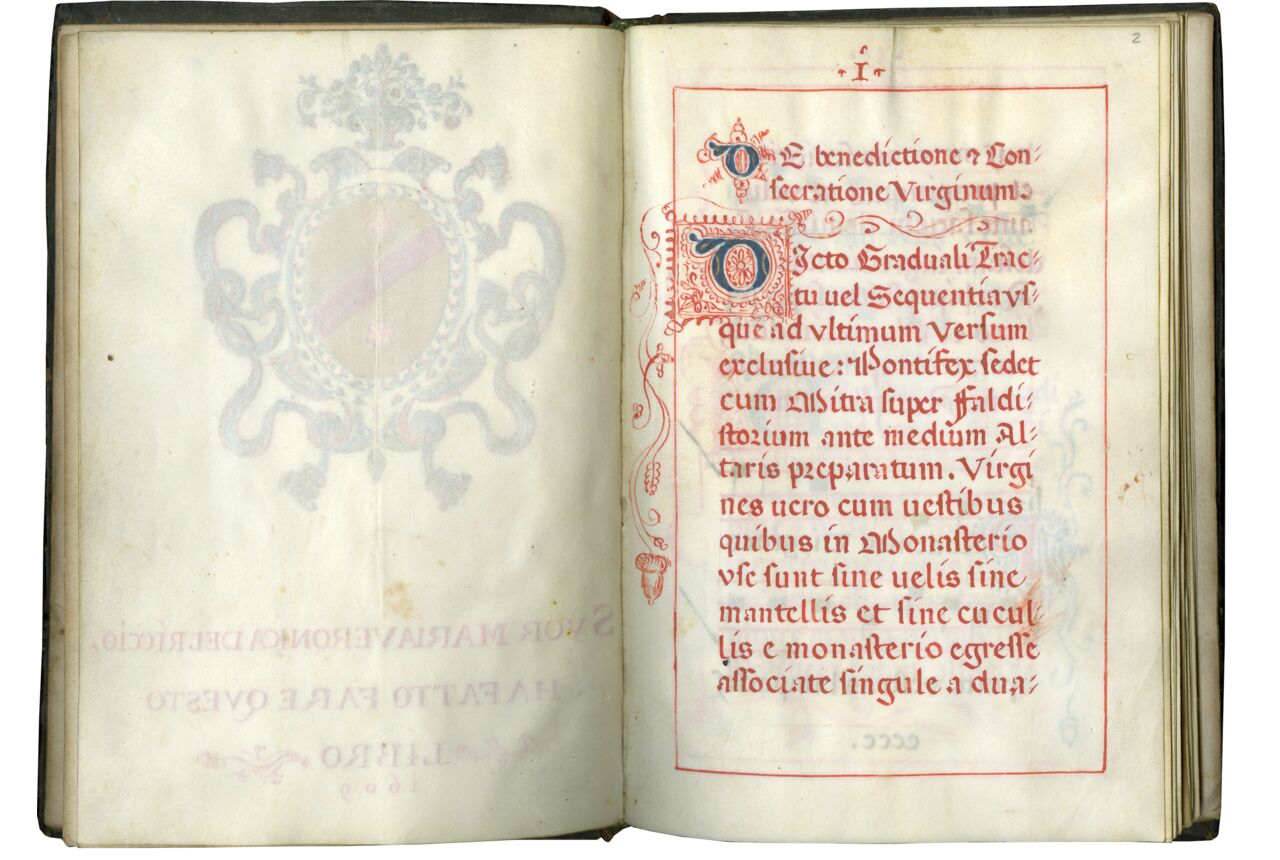 SVOR MARIA VERONICA DEL RICCIO,
HA FATTO FARE QVESTO
LIBRO
1609
2
I
DE benedictione & Con-
secratione Virginum.
DIcto Graduali Trac-
tu uel Sequentia vs-
que ad vltimum Versum
exclusiue: Pontifex sedet
cum Mitra super Faldi-
storium ante medium Al-
taris preparatum. Virgi
nes uero cum uestibus
quibus in Monasterio
vse sunt sine uelis sine
mantellis et sine cucul-
lis e monasterio egresse
associate singule a dua-